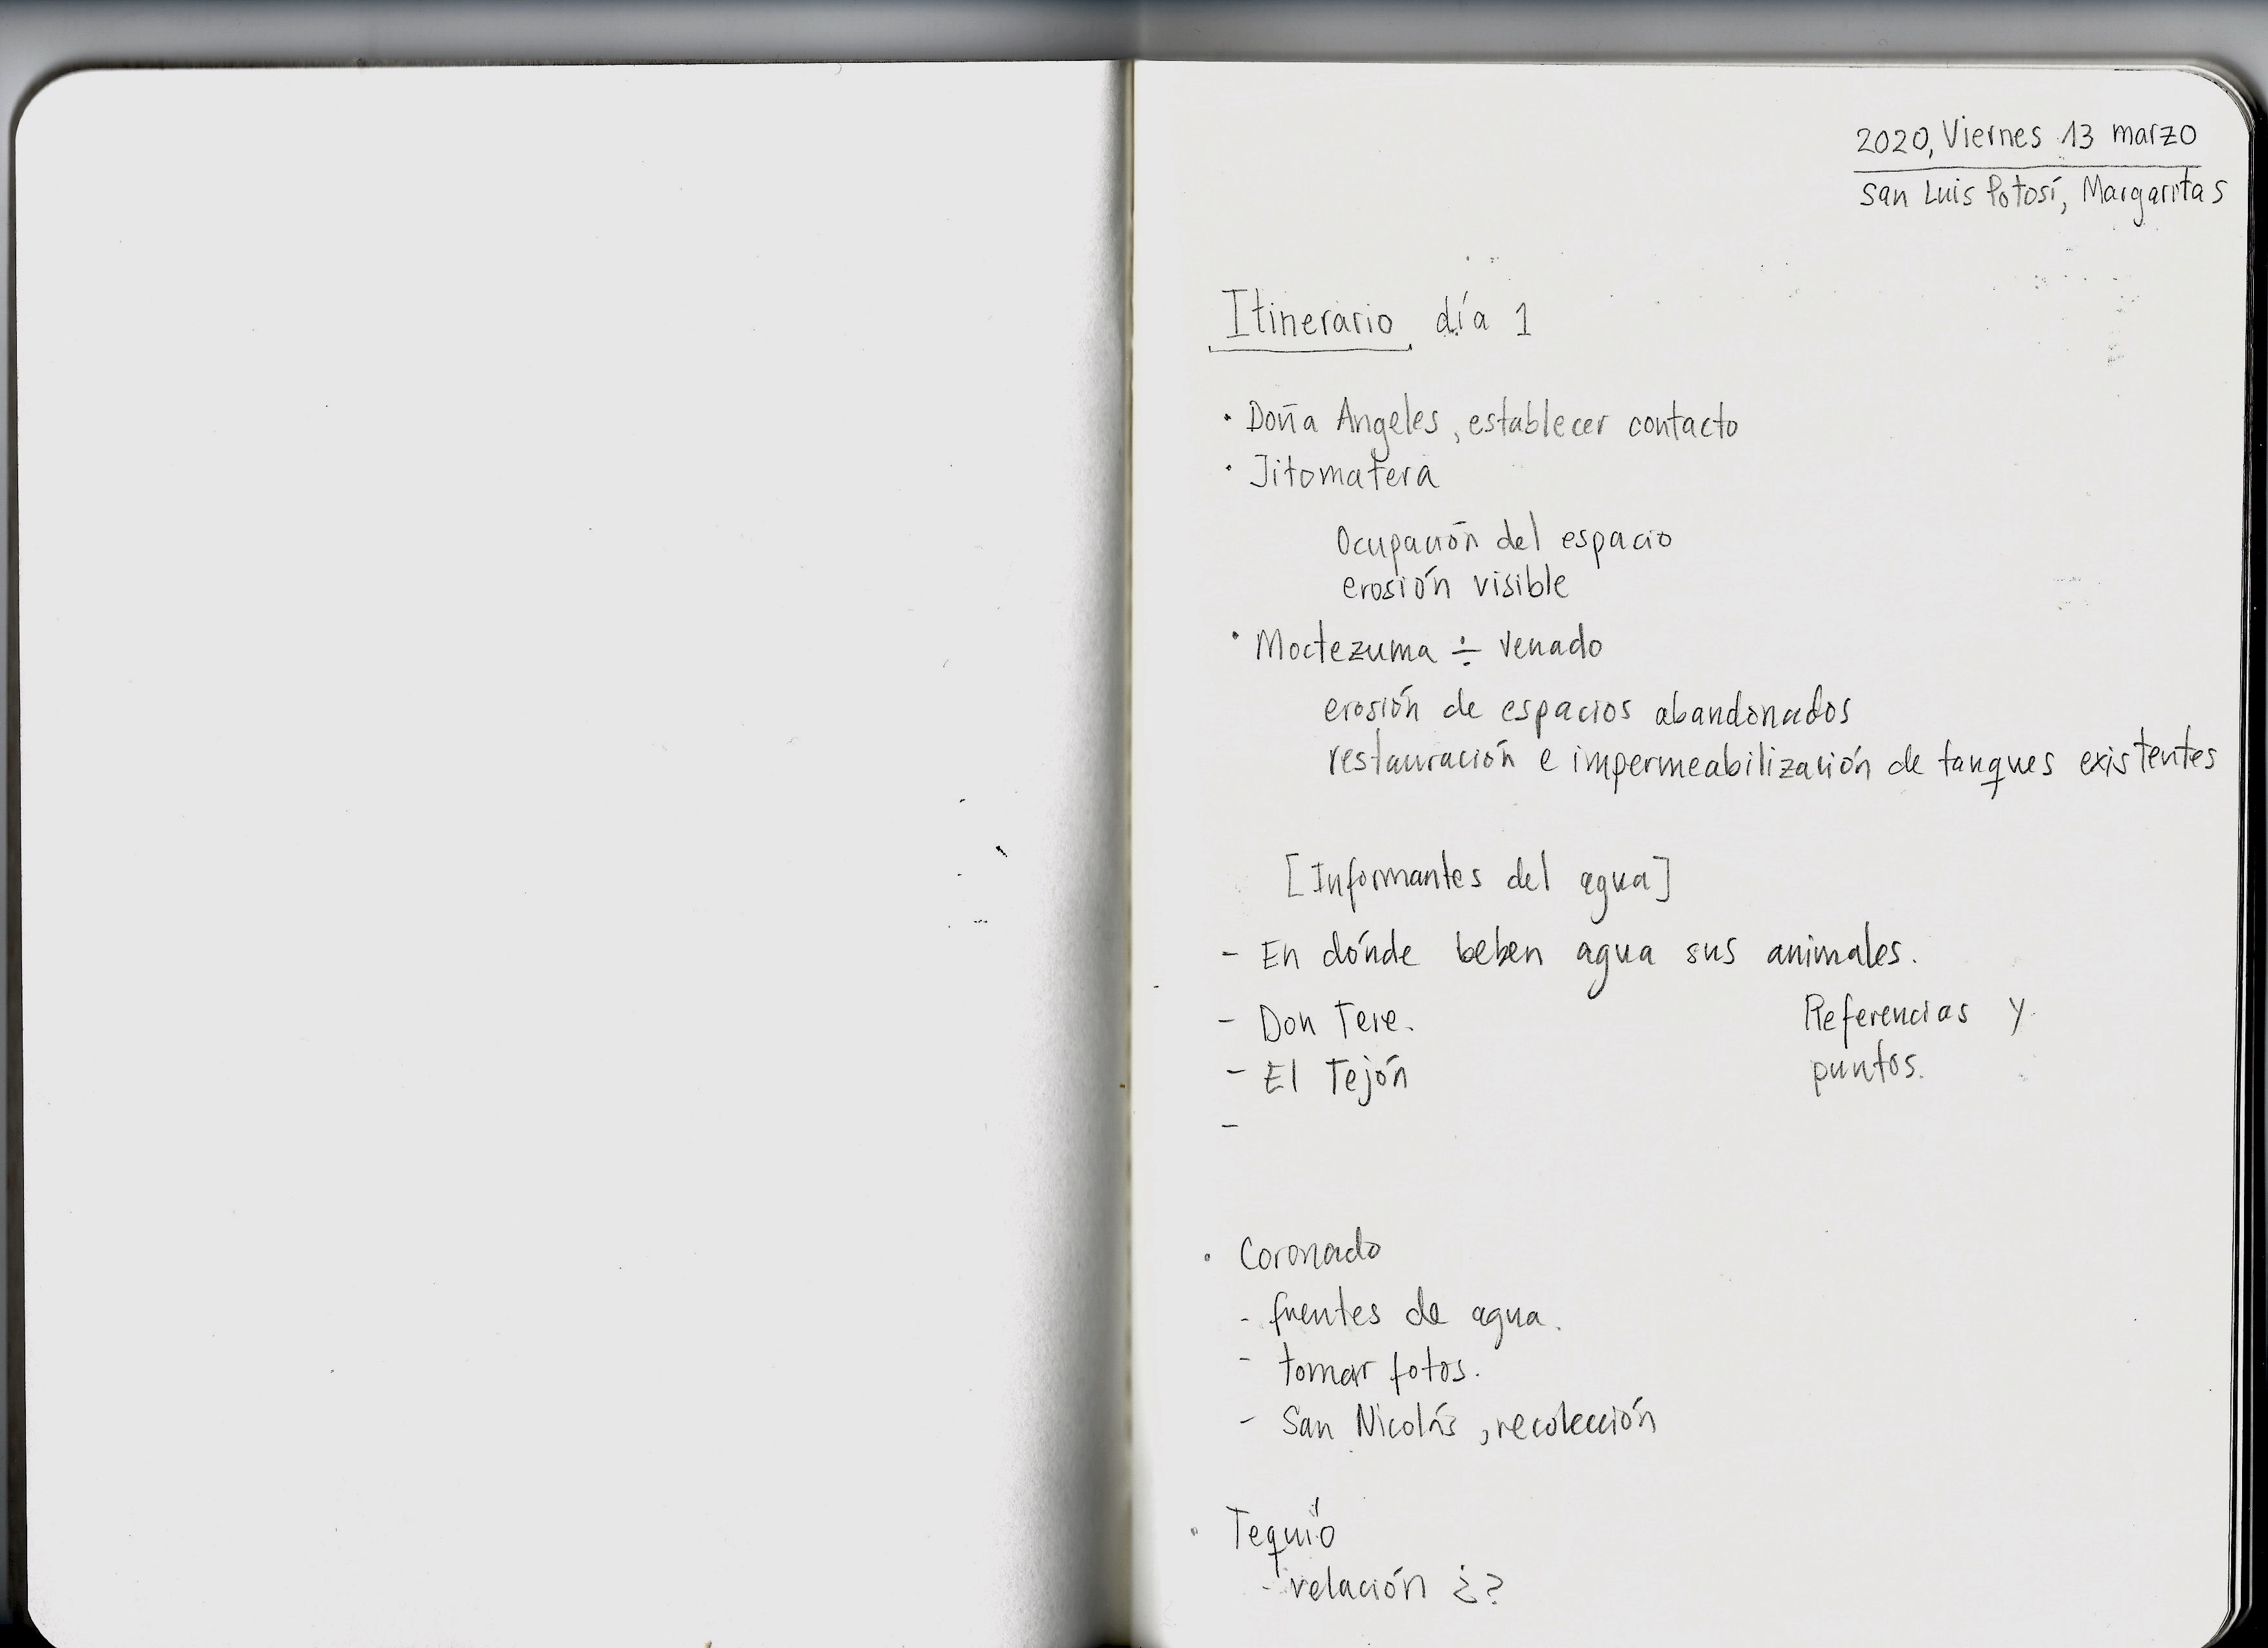 2020, Viernes 13 marzo
San Luis Potosí, Margaritas
Itinerario día 1
· Doña Angeles, establecer contacto
· Jitomatera
Ocupación del espacio
erosión visible
· Moctezuma ÷ venado
erosión de espacios abandonados
restauración e impermeabilización de tanques existentes
[Informantes del agua]
- En dónde beben agua sus animales.
- Don Tere.
Referencias y
- El Tejón
puntos.
-
· Coronado
- fuentes de agua.
- tomar fotos.
- San Nicolás, recolección
· Tequío
- relación ¿?